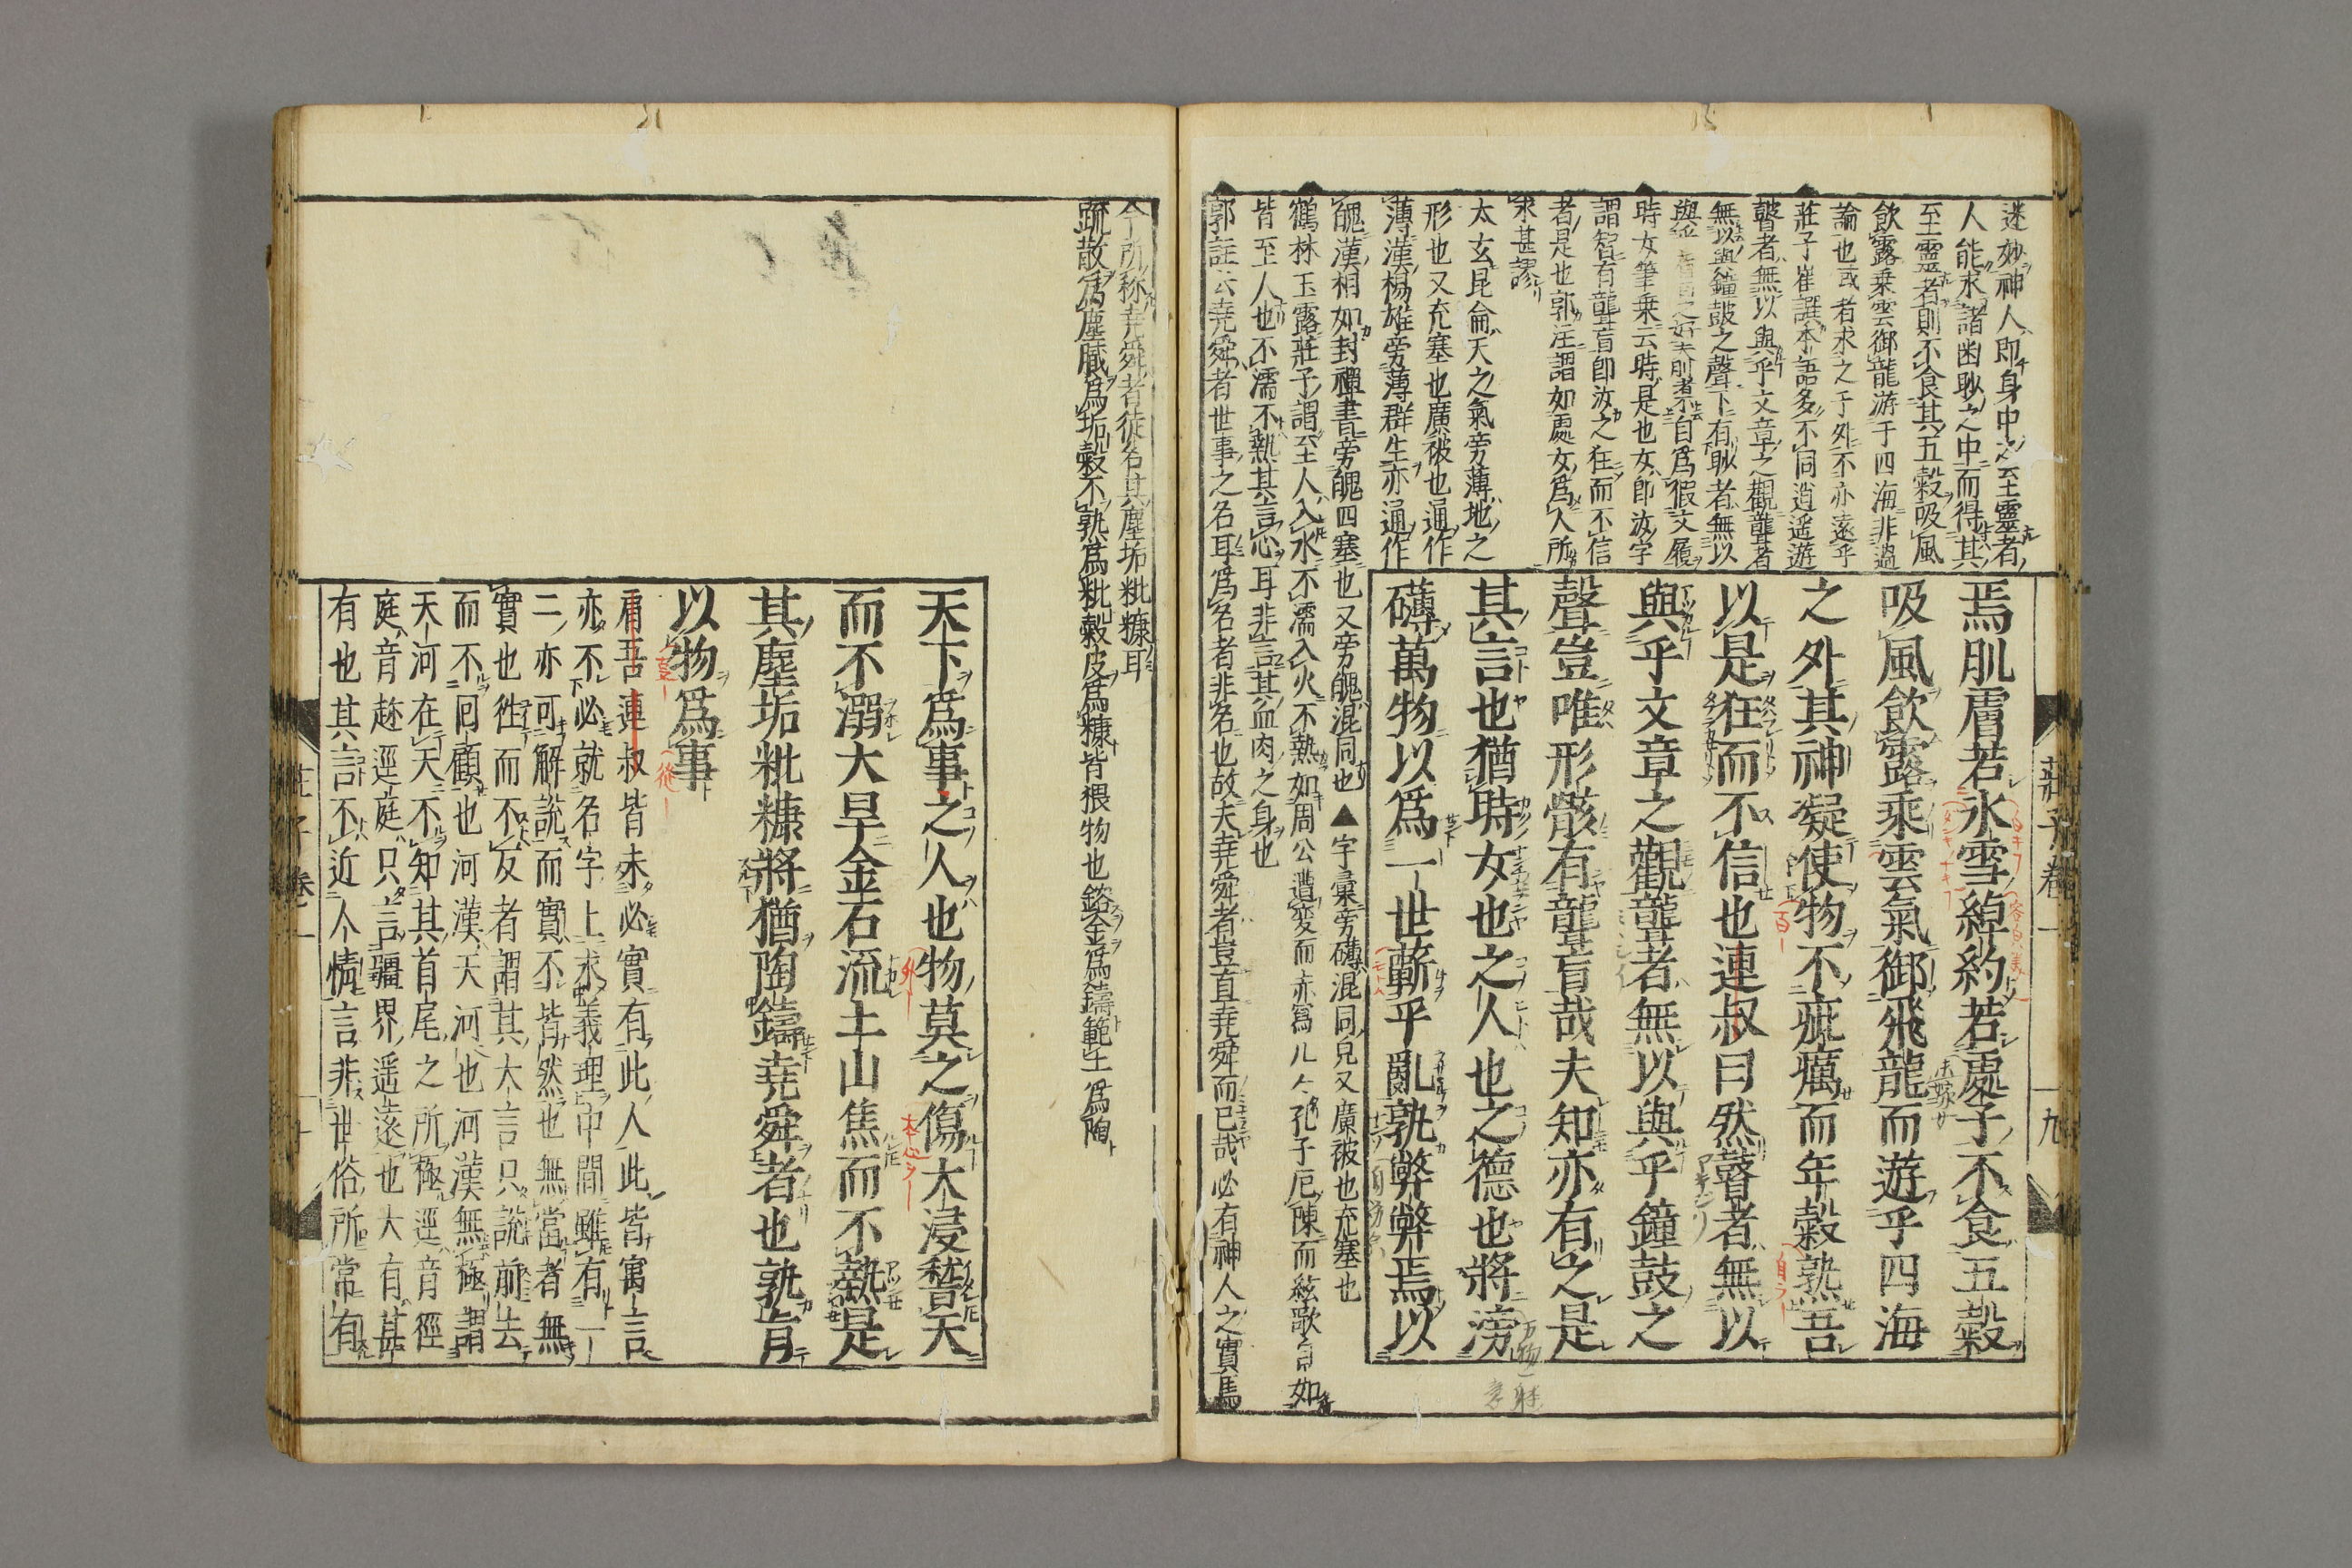 莊子卷一
九
迷妙神人即身中之至靈者
人能求諸凼耿之中而得其
至靈者則不食其五穀吸風
飲露乗雲御龍游于四海非過
論也或者求之于外不亦遠乎
莊子崔譔本語多不同逍遥遊
瞽者無以與乎文章之觀聾者
無以與鐘皷之聲下有耿者無以
與 之好夫刖者不自爲假文履
時女筆乗云時是也女即汝字
謂智有聾盲即汝之狂而不信
者是也郭注謂如處女爲人所
求甚謬
太玄昆侖天之氣旁薄地之
形也又充塞也廣被也通作
薄漢楊雄旁薄群生亦通作
魄漢相如封禪書旁魄四塞也又旁魄混同也▲字彙旁礴混同皃又廣被也充塞也
鶴林玉露莊子謂至人入水不濡入火不熱如周公遭変而赤舄几几孔子厄陳而絃歌自如
皆至人也不濡不熱其言心耳非言其血肉之身也
郭註云堯舜者世事之名耳爲名者非名也故夫堯舜者豈直堯舜而已哉必有神人之實焉
焉肌膚若氷雪綽約若處子不食五穀
吸風飲露乘雲氣御飛龍而遊乎四海
之外其神凝使物不疵癘而年穀熟吾
以是狂而不信也連叔曰然瞽者無以
與乎文章之觀聾者無以與乎鐘鼓之
聲豈唯形骸有聾盲哉夫知亦有之是
其言也猶時女也之人也之德也將滂
礴萬物以爲一世蘄乎亂孰弊弊焉以
今所称堯舜者徒名其塵垢粃糠耳
䟽散爲塵膩爲垢穀不熟爲粃穀皮爲糠皆猥物也鎔金爲鑄範土爲陶
天下爲事之人也物莫之傷大浸稽天
而不溺大旱金石流土山焦而不熱是
其塵垢粃糠將猶陶鑄堯舜者也孰肯
以物爲事
肩吾連叔皆未必實有此人此皆寓言
亦不必就名字上求義理中間雖有一
二亦可解說而實不皆然也無當者無
實也徃而不反者謂其大言只說前去
而不回顧也河漢天河也河漢無極謂
天河在天不知其首尾之所極逕音徑
庭音趂逕庭只言疆界遥遠也大有甚
有也其言不近人情言非世俗所常有
莊子卷一
十